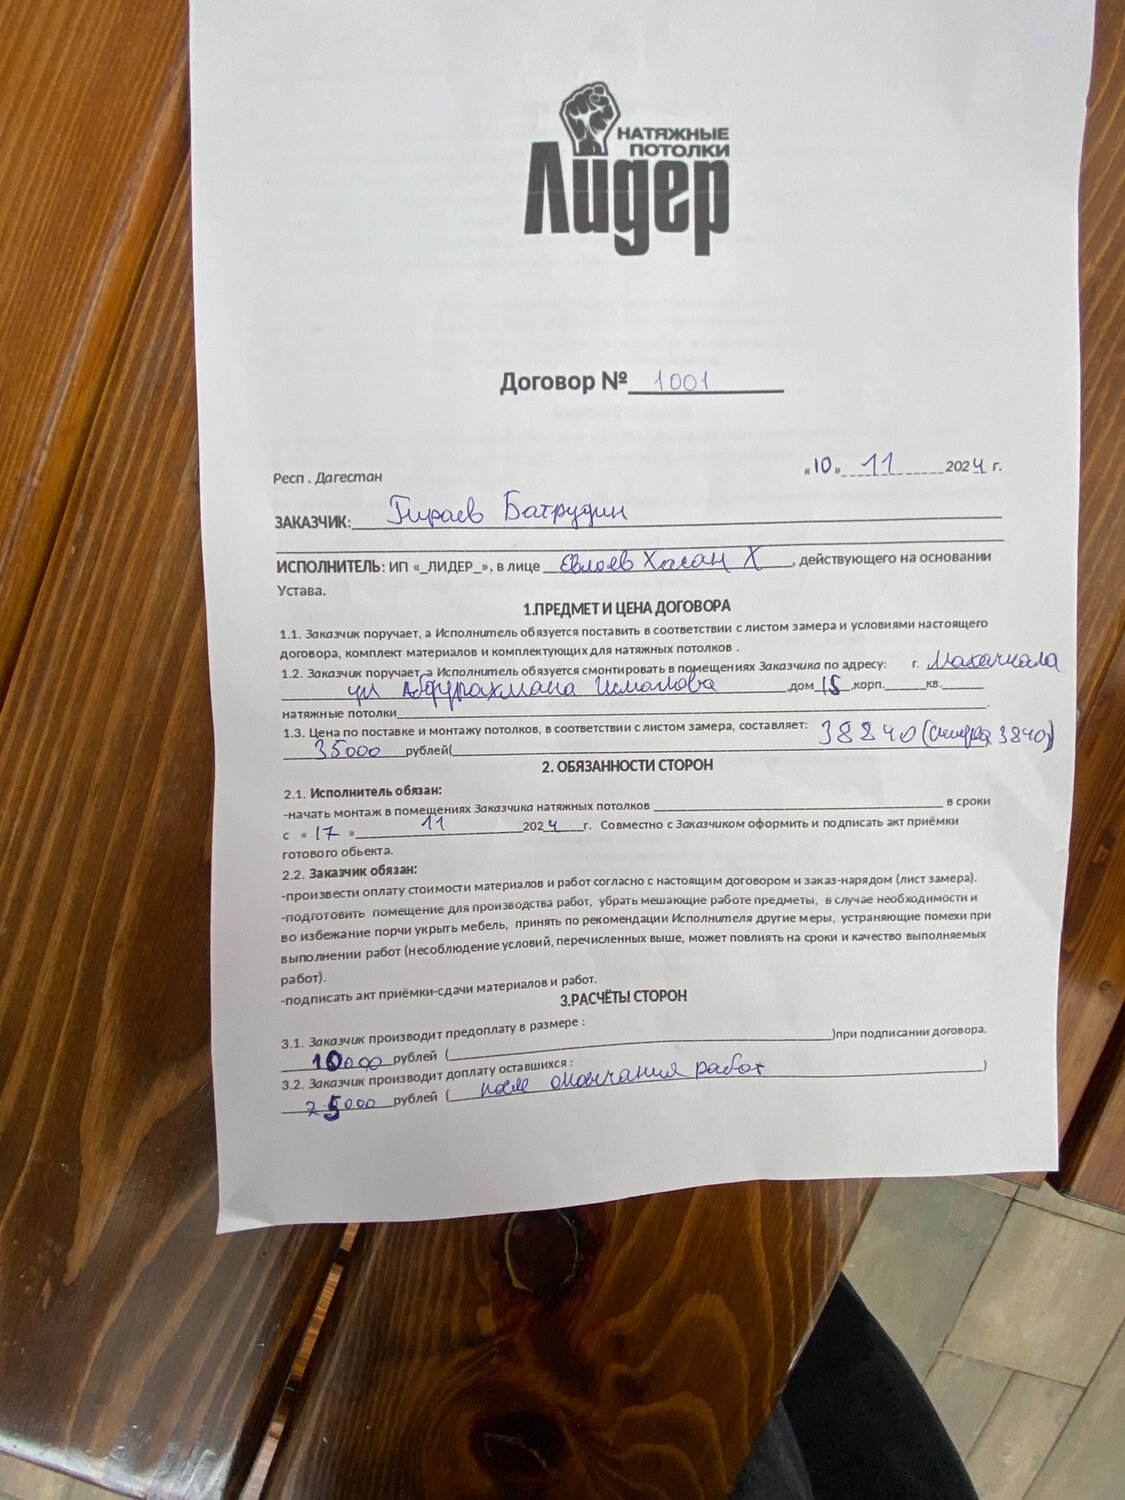 НАТЯЖНЫЕ
ПОТОЛКИ
Лидер
Договор № 1001
Респ . Дагестан «10» 11 2024 г.
ЗАКАЗЧИК: Гираев Батрудин
ИСПОЛНИТЕЛЬ: ИП «_ЛИДЕР_», в лице Евлоев Хасан Х, действующего на основании
Устава.
1.ПРЕДМЕТ И ЦЕНА ДОГОВОРА
1.1. Заказчик поручает, а Исполнитель обязуется поставить в соответствии с листом замера и условиями настоящего
договора, комплект материалов и комплектующих для натяжных потолков .
1.2. Заказчик поручает, а Исполнитель обязуется смонтировать в помещениях Заказчика по адресу: г. Махачкала
ул Абдурахмана Исмаилова ,дом 15 ,корп.______кв.______
натяжные потолки.
1.3. Цена по поставке и монтажу потолков, в соответствии с листом замера, составляет: 38840 (скидка 3840)
35000 рублей(
2. ОБЯЗАННОСТИ СТОРОН
2.1. Исполнитель обязан:
-начать монтаж в помещениях Заказчика натяжных потолков ______ в сроки
с «17 » 11 2024 г. Совместно с Заказчиком оформить и подписать акт приёмки
готового обьекта.
2.2. Заказчик обязан:
-произвести оплату стоимости материалов и работ согласно с настоящим договором и заказ-нарядом (лист замера).
-подготовить помещение для производства работ, убрать мешающие работе предметы, в случае необходимости и
во избежание порчи укрыть мебель, принять по рекомендации Исполнителя другие меры, устраняющие помехи при
выполнении работ (несоблюдение условий, перечисленных выше, может повлиять на сроки и качество выполняемых
работ).
-подписать акт приёмки-сдачи материалов и работ.
3.РАСЧЁТЫ СТОРОН
3.1. Заказчик производит предоплату в размере :
10000 рублей ( )при подписании договора.
3.2. Заказчик производит доплату оставшихся :
25000 рублей ( после окончания работ )